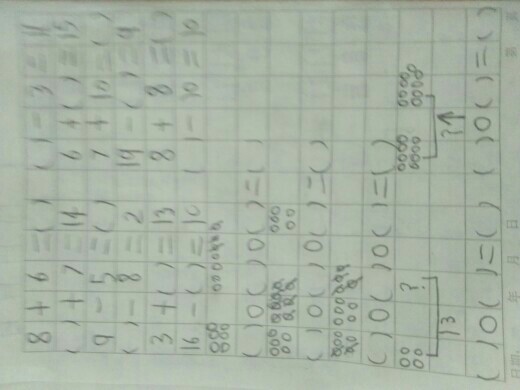 8 + 6 = ( ) ( ) - 3 = 11
( ) + 7 = 14 6 + ( ) = 15
9 - 5 = ( ) 7 + 10 = ( )
( ) - 8 = 2 19 - ( ) = 19
3 + ( ) = 13 8 + 8 = ( )
16 - ( ) = 10 ( ) - 10 = 10
( ) O ( ) O ( ) = ( )
( ) O ( ) O ( ) = ( )
( ) O ( ) O ( ) = ( )
?
13 ?
( ) O ( ) = ( ) ( ) O ( ) = ( )
日期 年 月 日